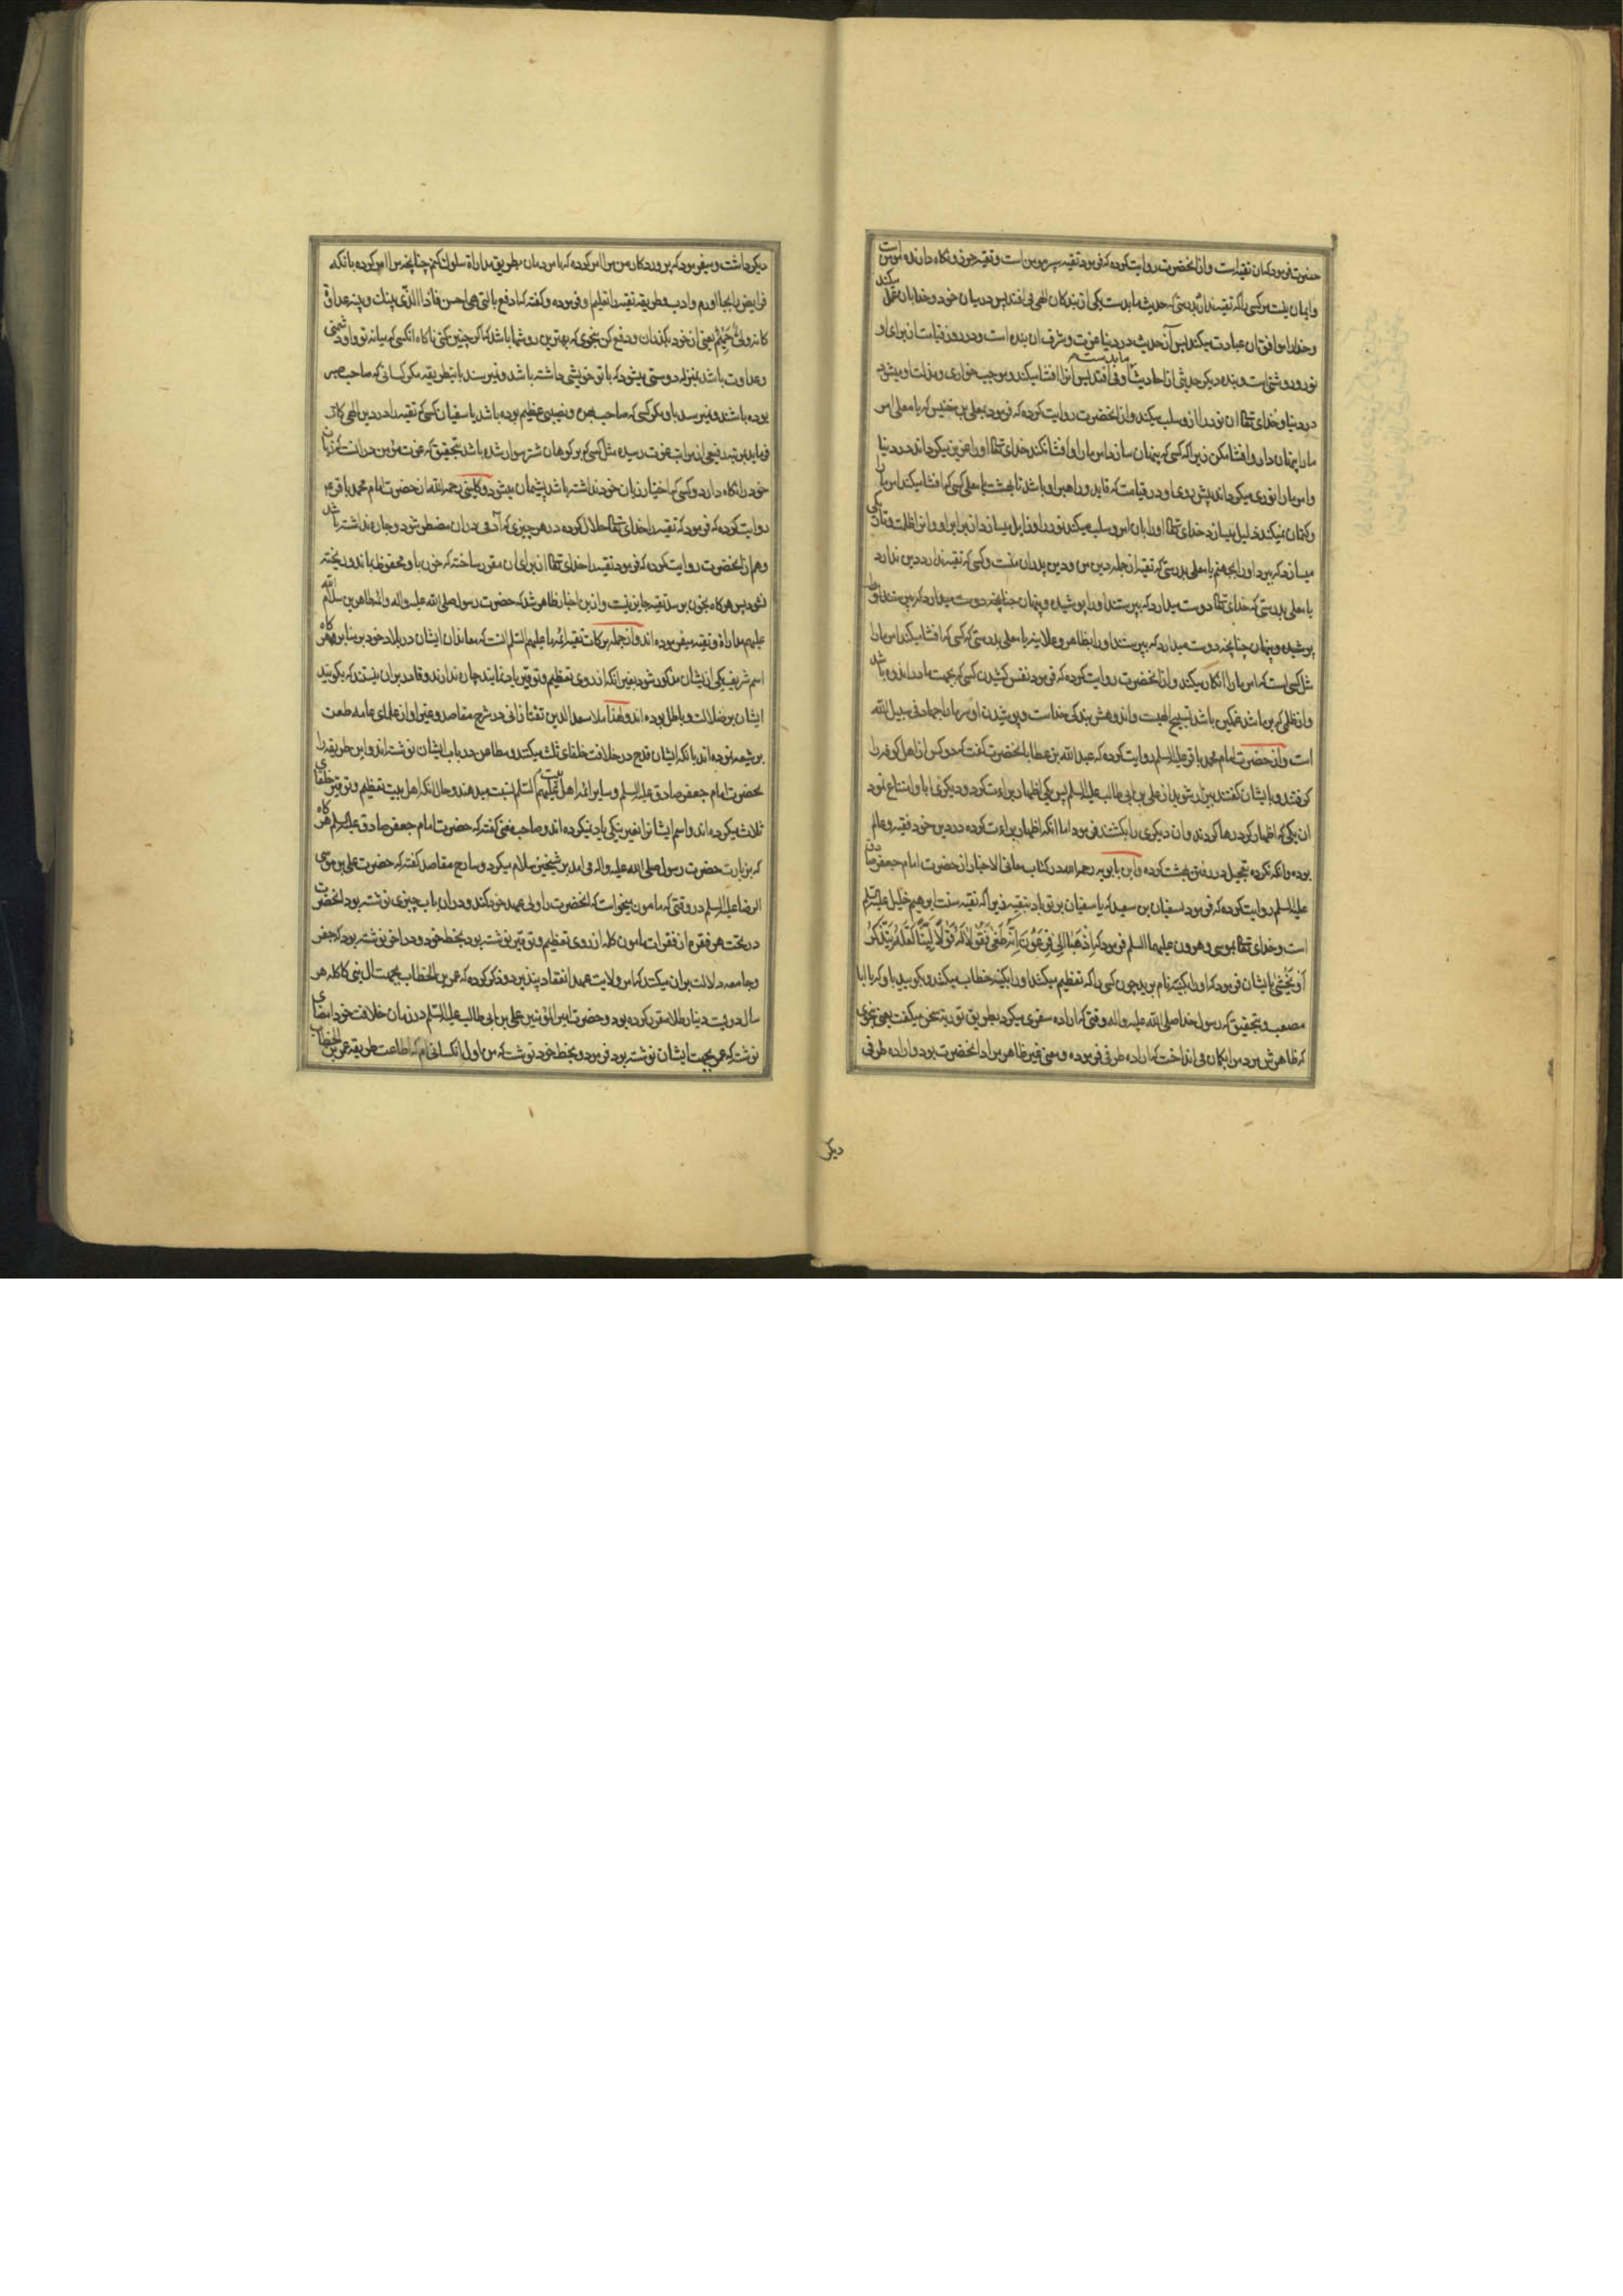 حضرت فرمود که آن تقیه است و از آنحضرت روایت کرده که فرمود تقیه سپر مومن است و تقیه حرز و نگاه دارنده مومن است
و ایمان نیست مر کسی را که تقیه ندارد بدرستی که حدیث ما بدست یکی از بندکان الهی می افتد پس در میان خود و خدا بان عمل میکند
و خدا را موافق آن عبادت میکند پس آن حدیث در دنیا عزت و شرف آن بنده است و در روز قیامت از برای او
نور و روشنی است و بنده دیگر حدیثی از احادیث ما بدستش می افتد پس آنرا افشا میکند و موجب خواری و مذلت او میشود
در دنیا و خدای تعالی آن نور را ازو سلب میکند و از آنحضرت روایت کرده که فرمود بمعلی بن خنیس که یا معلی امر
ما را پنهان دار و افشا مکن زیرا که کسی که پنهان سازد امر ما را و افشا نکند خدای تعالی او را عزیز میکرداند در دنیا
و امر ما را نوری میکرداند پیش روی او در قیامت که قاید و راهبر او باشد تا بهشت یا معلی کسی که افشا میکند امر ما را
و کتمان نمیکند ذلیل میسازد خدای تعالی او را بان امر و سلب میکند نور را و زایل میسازد از برابر او و آنرا ظلمت و تاریکی
میسازد که ببرد او را بجهنم یا معلی بدرستی که تقیه از جمله دین من و دین پدران منست و کسی که تقیه ندارد دین ندارد
یا معلی بدرستی که خدای تعالی دوست میدارد که بپرستند او را
پوشیده و پنهان چنانچه دوست میدارد که بپرستند او را بظاهر و علانیه یا معلی بدرستی که کسی که افشا میکند امر ما را
مثل کسی است که امر ما را انکار میکند و از آنحضرت روایت کرده که فرمود نفس کشیدن کسی که بجهت ما در اندوه باشد
و از ظلمی که بر ما شد غمگین باشد تسبیح الهیست و اندوهش بندکی خداست و پوشیدن او سر ما را جهاد فی سبیل الله
است و از حضرت امام محمد باقر علیه السلم روایت کرده که عبد الله بن عطا بانحضرت گفت که دو کس از اهل کوفه را
گرفتند و بایشان گفتند بیزار شوید از علی بن ابی طالب علیه السلم پس یکی اظهار براءت کرد و دیگری ابا و امتناع نمود
آن یکی که اظهار کرد رها کردند و آن دیگری را بکشتند فرمود اما آنکه اظهار براءت کرده در دین خود فقیه و عالم
بوده و آنکه نکرده تعجیل در رفتن بهشت کرده و ابن بابویه رحمه الله در کتاب معانی الاخبار از حضرت امام جعفر صادق
علیه السلم روایت کرده که فرمود بسفیان بن سعید که یا سفیان بر تو باد بتقیه زیرا که تقیه سنت ابرهیم خلیل علیه السلم
است و خدای تعالی بموسی و هرون علیهما السلم فرمود که اِذْهَبَا اِلٰی فِرْعَوْنَ اِنَّهُ طَغٰی فَقُولَا لَهُ قَوْلًا لَیِّنًا لَعَلَّهُ یَتَذَکَّرُ
اَوْ یَخْشٰی بایشان فرمود که او را بکنیه نام برید چون کسی را که تعظیم میکنند او را بکنیه خطاب میکنند و بکویید باو که یا ابا
مصعب و بتحقیق که رسول خدا صلی الله علیه و اله وقتی که اراده سفری میکرد بطریق توریه سخن میگفت یعنی بنحوی
که ظاهرش مردم را بکمان می انداخت که اراده طرفی فرموده و معنی غیر ظاهر مراد آنحضرت بود و اراده طرفی
دیکر
دیکر داشت و میفرمود که پروردکار من مرا امر کرده که با مردمان بطریق مداراة سلوک کنم چنانچه مرا امر کرده بانکه
فرایض را بجا اورم و ادب و طریقه تقیه را تعلیم او فرموده و گفته که ادفع بالتی هی احسن فاذا الذی بینک و بینه عداوة
کانه ولی حمیم یعنی از خود بگذران و دفع کن بنحوی که بهترین روشها باشد که اگر چنین کنی ناکاه آنکسی که میانه تو و او دشمنی
و عداوت باشد بمنزله دوستی میشود که با تو خویشی داشته باشد و نمیرسند باینطریقه مکر کسانی که صاحب صبر
بوده باشند و نمیرسد باو مکر کسی که صاحب بهره و نصیبی عظیم بوده باشد یا سفیان کسی که تقیه را در دین الهی کار
فرماید بمرتبه رفیعی از مراتب عزت رسیده مثل کسی که بر کوهان شتر سوار شده باشد بتحقیق که عزت مؤمن در آنست که زبان
خود را نگاه دارد و کسی که اختیار زبان خود نداشته باشد پشیمان میشود و کلینی رحمه الله از حضرت امام محمد باقر ع
روایت کرده که فرمود که تقیه را خدای تعالی حلال کرده در هر چیزی که آدمی در آن مضطر شود و چاره نداشته باشد
و هم از آنحضرت روایت کرده که فرمود تقیه را خدای تعالی از برای آن مقرر ساخته که خون باو محفوظ بماند و ریخته
نشود پس هرکاه بخون برسد تقیه جایز نیست و ازین اخبار ظاهر شد که حضرت رسول صلی الله علیه و اله و ائمه طاهرین سلام الله
علیهم مداراة و تقیه میفرموده اند و از جمله برکات تقیه ائمه ما علیهم السلم آنست که معاندان ایشان در بلاد خود بر منابر هرکاه
اسم شریف یکی از ایشان مذکور شود بغیر انکه از روی تعظیم و توقیر یاد نمایند چاره ندارند و قادر بران نیستند که بکویند
ایشان بر ضلالت و باطل بوده اند و لهذا ملا سعد الدین تفتازانی در شرح مقاصد و غیر او از علمای عامه طعن
بر شیعه نموده اند بانکه ایشان قدح در خلافت خلفای ثلث میکنند و مطاعن در باب ایشان نوشته اند و این طریقه را
بحضرت امام جعفر صادق علیه السلم و سایر ائمه اهل بیت علیهم السلم نسبت میدهند و حال آنکه اهل بیت تعظیم و توقیر خلفای
ثلاث میکرده اند و اسم ایشانرا بغیر نیکی یاد نمیکرده اند و صاحب مغنی گفته که حضرت امام جعفر صادق علیه السلم هرکاه
که بزیارت حضرت رسول صلی الله علیه و اله می آمد بر شیخین سلام میکرد و شارح مقاصد گفته که حضرت علی بن موسی
الرضا علیه السلم در وقتی که مامون میخواست که آنحضرت را ولی عهد خود کند و در آن باب چیزی نوشته بود آنحضرت
در تحت هر فقره از فقرات مامون کلمه از روی تعظیم و توقیر نوشته بود بخط خود و در آخر نوشته بود که جفر
و جامعه دلالت بر آن میکند که امر ولایت عهد انعقاد پذیر نبود و ذکر کرده که عمر بن الخطاب بجهت آل بنی کاکله هر
سال دویست دینار طلا مقرر کرده بود و حضرت امیر المؤمنین علی بن ابی طالب علیه السلم در زمان خلافت خود امضای
نوشته که عمر بجهت ایشان نوشته بود فرمود و بخط خود نوشت که من اول آنکسانی ام که اطاعت طریقه عمر بن الخطاب